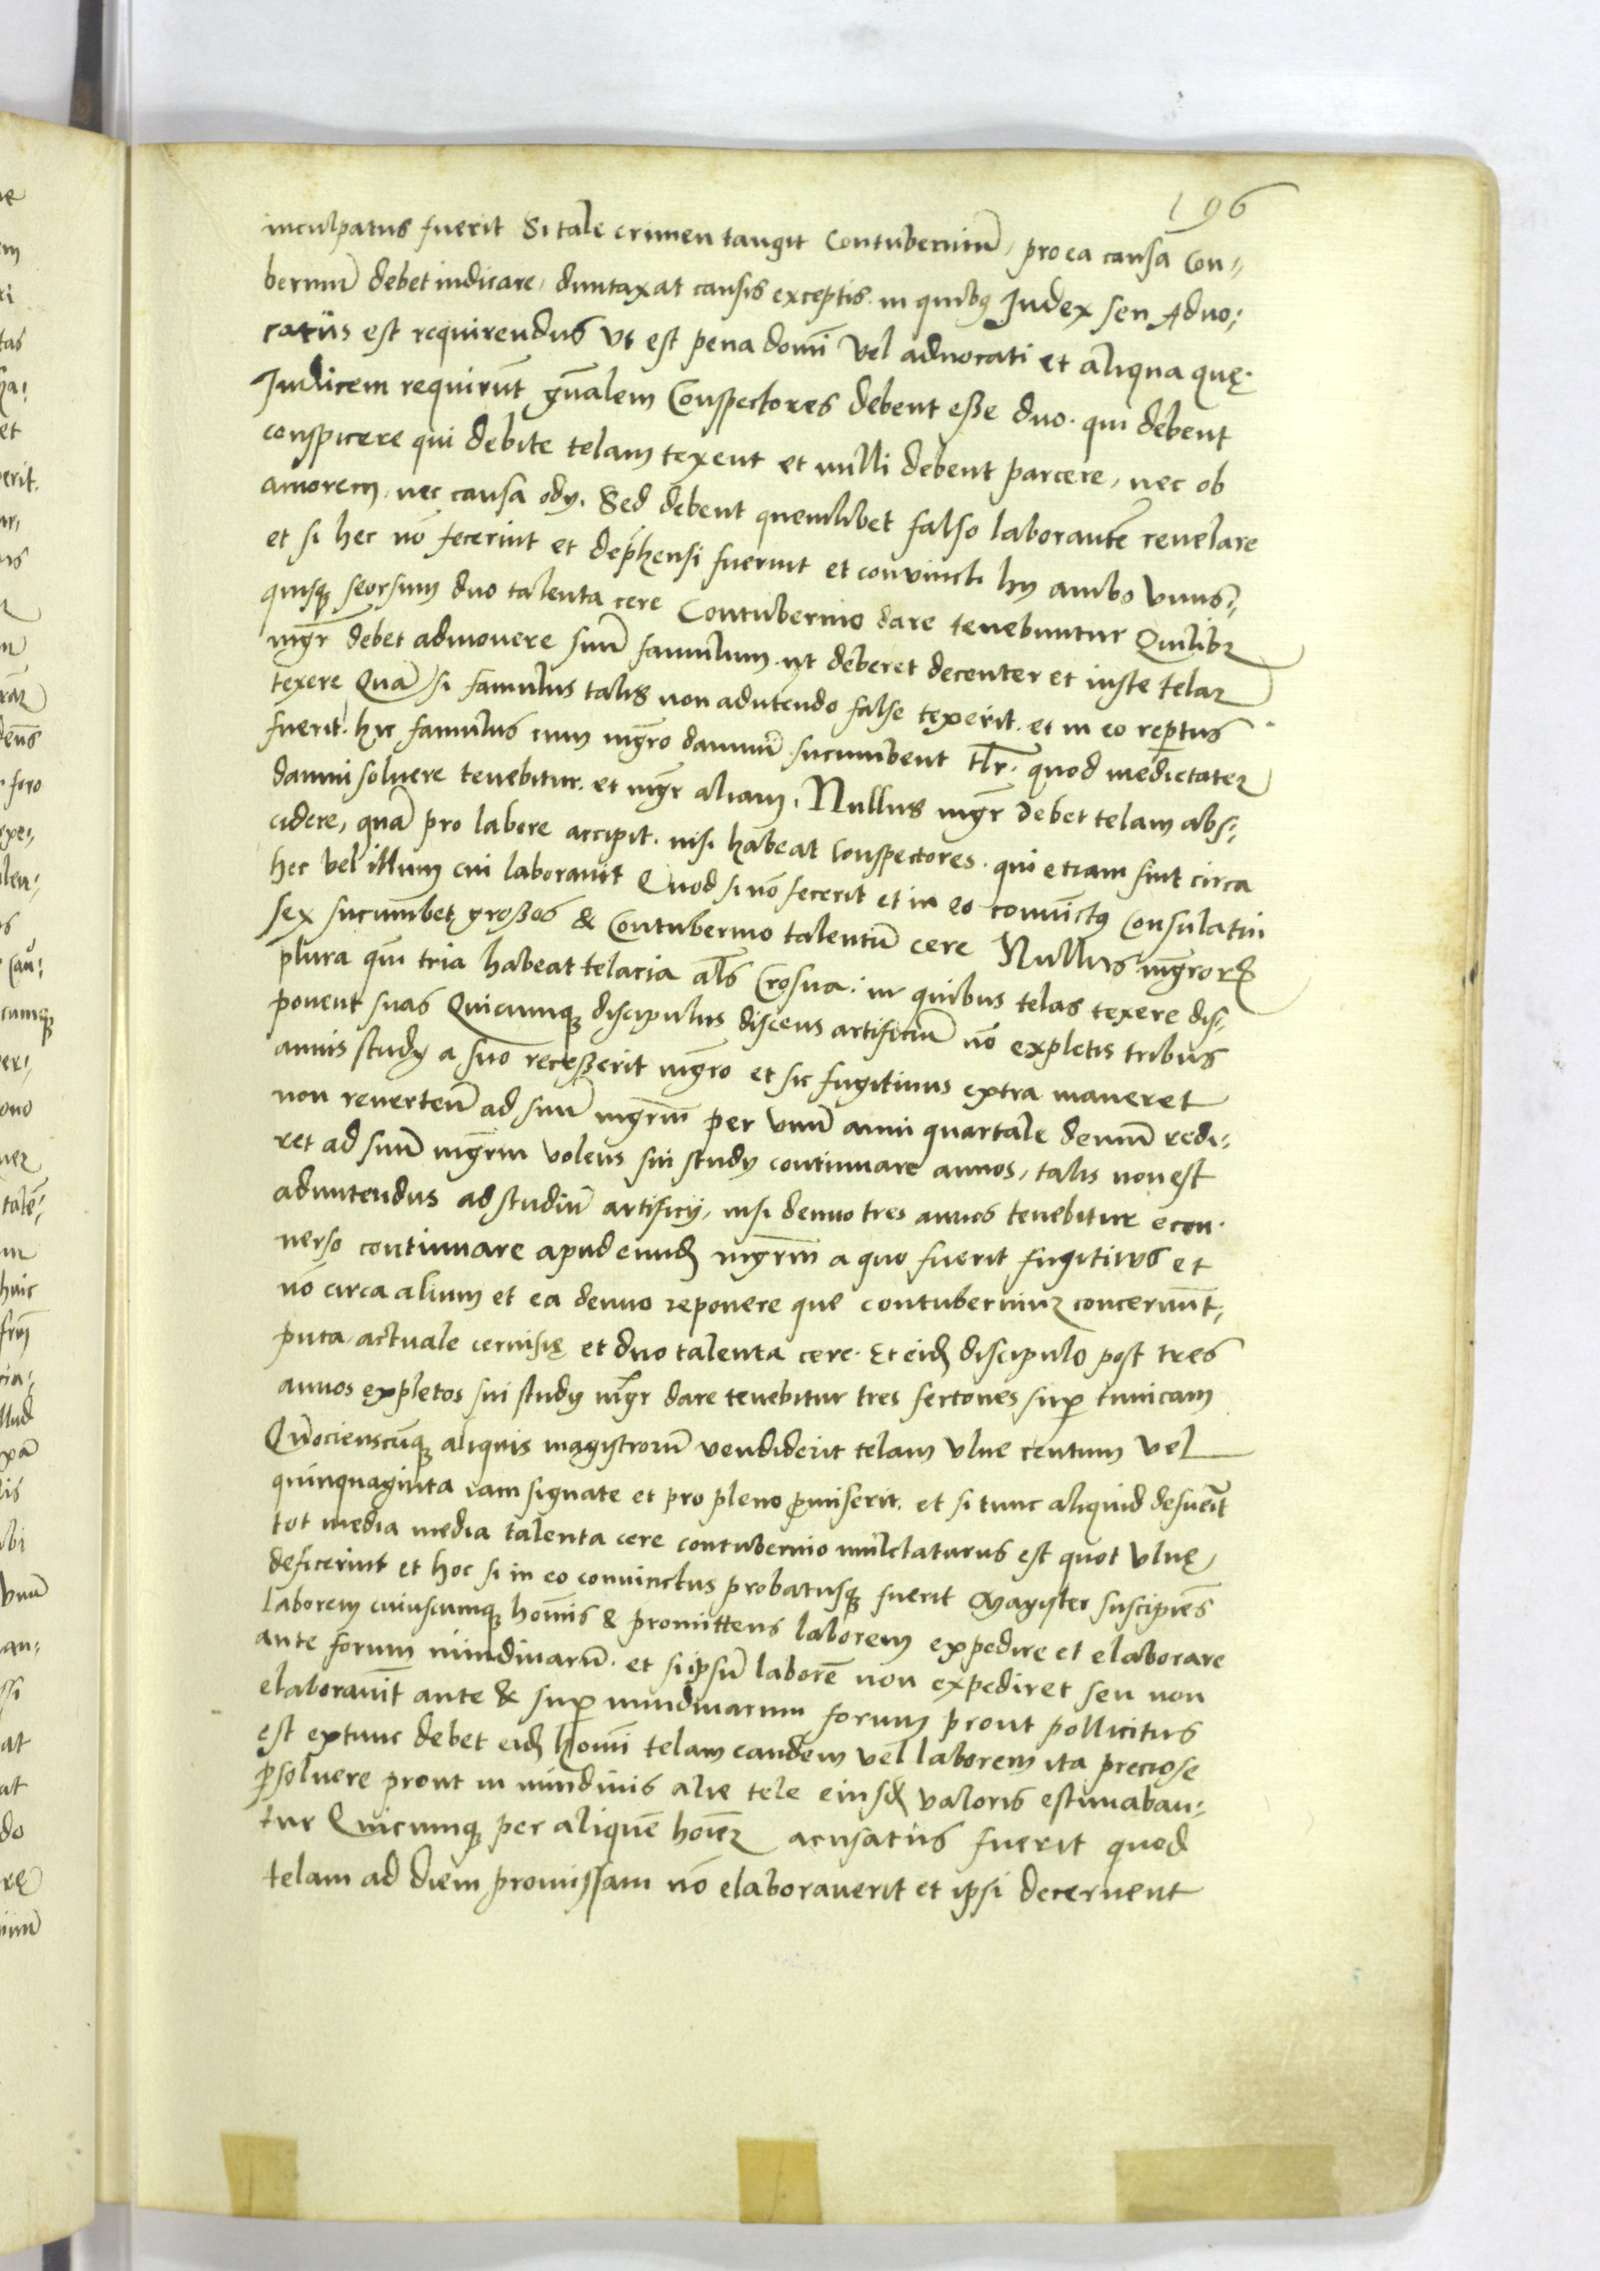 196
inculpatus fuerit Si tale crimen tangit Contuberniū, pro ea causa Con-
berniū debet iudicare, duntaxat causis exceptis in quibꝫ Iudex seu Aduo-
catus est requirendus Vt est pena domī vel aduocati et aliqua quę
Iudicem requirūt gn̄alem Conspectores debent esse duo qui debent
conspicere qui debite telam texent et nulli debent parcere, nec ob
amorem, nec causa odij. Sed debent quemlibet falso laborantē reuelare
et si hec nō fecerint et dep̄hensi fuerint et convincti hij ambo vnus-
quisqꝫ seorsum duo talenta cere Contubernio dare tenebuntur Quilibꝫ
mgr̄ debet admouere suū famulum, vt deberet decenter et iuste telaꝫ
texere Quā si famulus talis non aduertendo false texerit et in eo reptus
fuerit. hic famulus cum mgr̄o damnū sucumbent Ita quod medietateꝫ
damni soluere tenebitur. et mgr̄ aliam. Nullus mgr̄ debet telam abs-
cidere, quā pro labore accipit. nisi habeat Conspectores. qui etiam sint circa
hec vel illum cui laborauit Quod si nō fecerit et in eo conuictꝫ Consulatui
sex sucumbet grossos & Contubernio talentū cere Nullus mgr̄orꝝ
plura qm̄ tria habeat telaria als̄ Crosna. in quibus telas texere dis-
ponent suas Quicumqꝫ discipulus discens artificiū nō expletis tribus
annis studij a suo recesserit mgr̄o et sic fugitiuus extra maneret
non reuertēn ad suū mgr̄m per vnū anni quartale demū redi-
ret ad suū mgr̄m volens sui studij continuare annos, talis non est
admittendus ad studiū artificij, nisi denuo tres annos tenebitur econ-
uerso continuare apud eundꝫ mgr̄m a quo fuerit fugitiuus et
nō circa alium et ea denuo reponere que contuberniuꝫ concernūt,
puta, actuale ceruisię et duo talenta cere. Et eidꝫ discipulo post tres
annos expletos sui studij mgr̄ dare tenebitur tres fertones sup tunicam
Quocienscūqꝫ aliquis magistrorū vendiderit telam vlne centum vel
quinquaginta iam signate et pro pleno pmiserit. et si tunc aliquid defuerit
tot media media talenta cere contubernio mulctaturus est quot vlnę,
deficerint et hoc si in eo conuinctus probatusqꝫ fuerit Magister suscipiēs
laborem cuiuscumqꝫ homīs & promittens laborem expedire et elaborare
ante forum nundinarū. et si ipsū laborē non expediret seu non
elaborauit ante & sup nundinarum forum prout pollicitus
est extunc debet eidꝫ homī telam eandem vel laborem ita preciose
psoluere prout in nundinis alie tele eiusdꝫ valoris estimaban-
tur Quicumqꝫ per aliquē homēꝫ acusatus fuerit quod
telam ad diem promissam nō elaborauerit et ipsi decernent